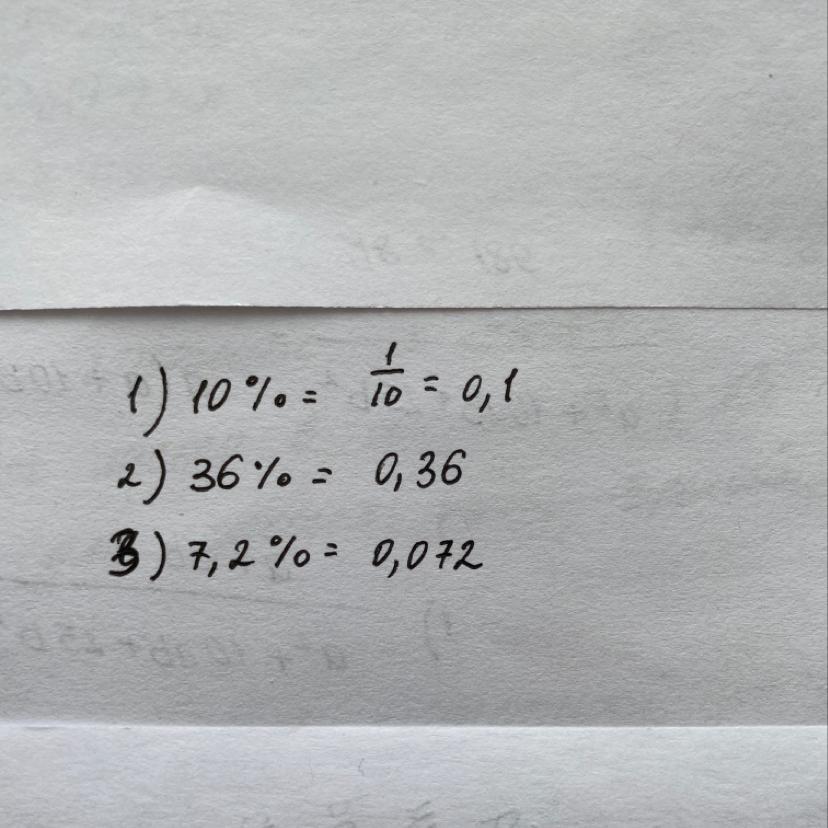 1) 10% = 1/10 = 0,1
2) 36% = 0,36
3) 7,2% = 0,072